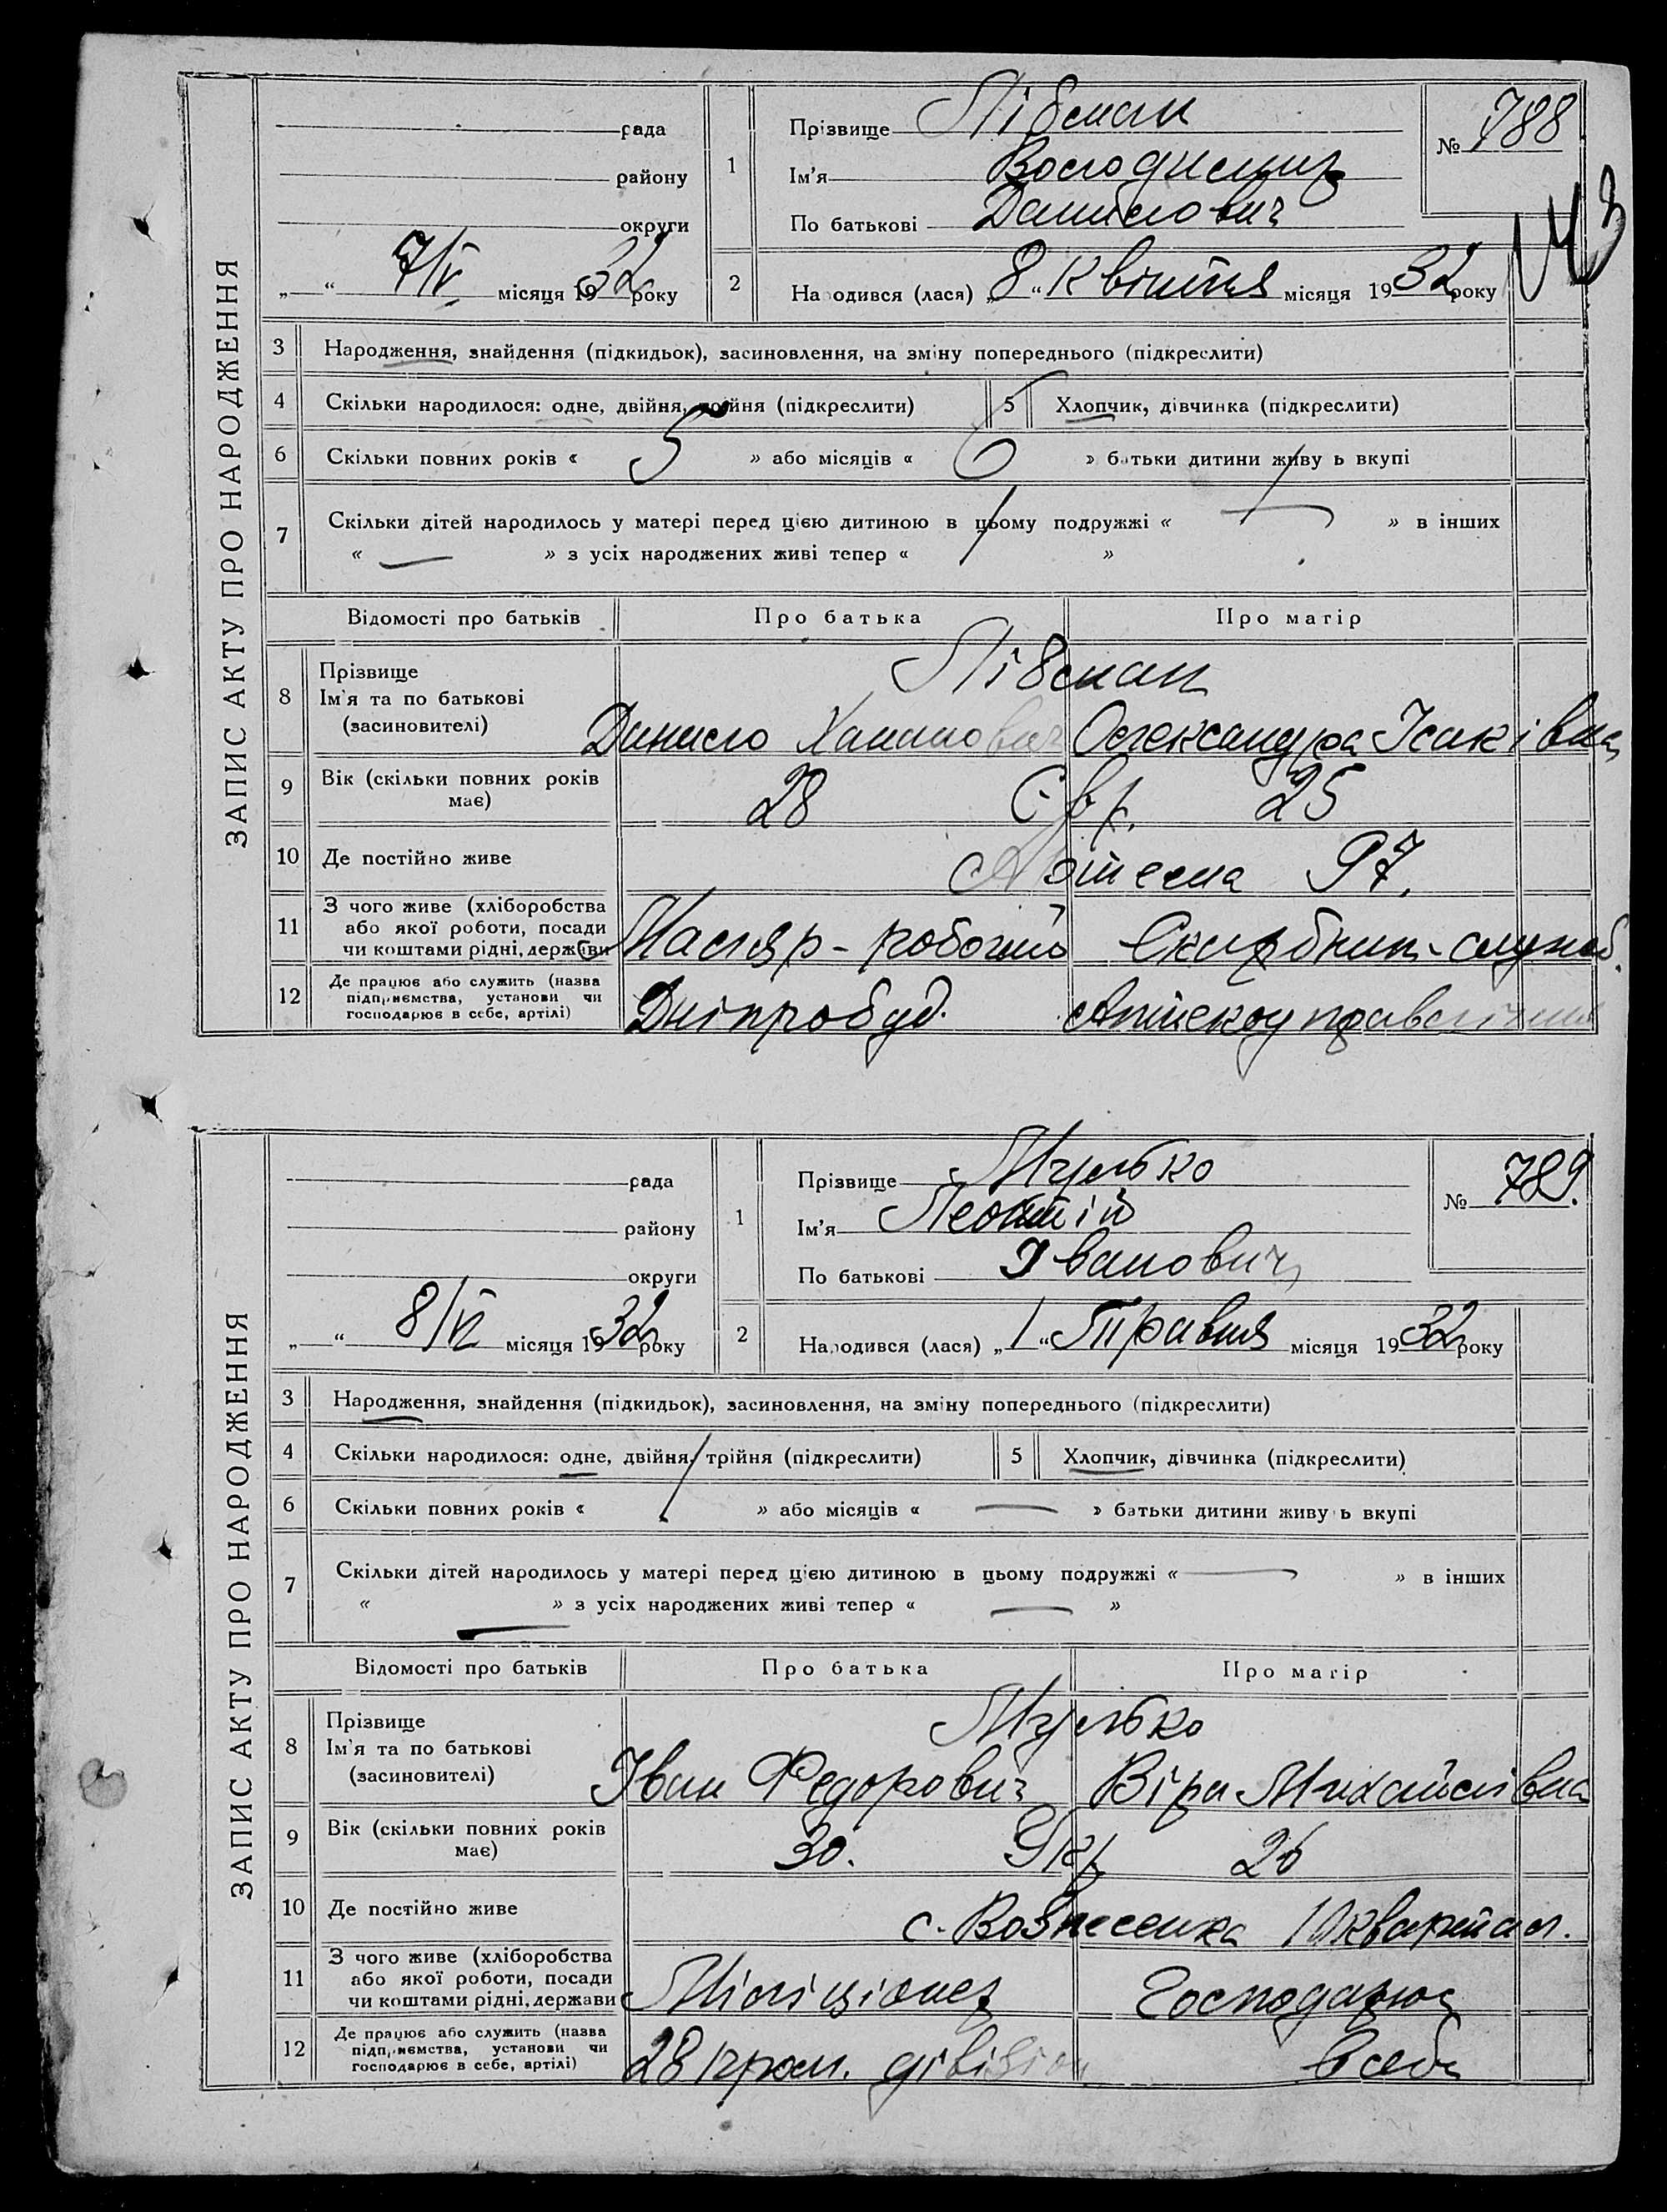 ЗАПИС АКТУ ПРО НАРОДЖЕННЯ
рада
району
округи
„ “ 7/V місяця 1932 року
1 Прізвище Лібман
Ім'я Володимир
По батькові Данилович
№ 788
2 Народився (лася) „8“ Квітня місяця 1932 року
3 Народження, знайдення (підкидьок), засиновлення, на зміну попереднього (підкреслити)
4 Скільки народилося: одне, двійня, тройня (підкреслити) 5 Хлопчик, дівчинка (підкреслити)
6 Скільки повних років « 5 » або місяців « » батьки дитини живу ь вкупі
7 Скільки дітей народилось у матері перед цією дитиною в цьому подружжі « » в інших
« — » з усіх народжених живі тепер « »
Відомості про батьків Про батька Про матір
8 Прізвище
Ім'я та по батькові
(засиновителі)
Лібман
Данило Хананович Олександра Ісаківна
9 Вік (скільки повних років має) 28 Євр. 25
10 Де постійно живе 97.
11 З чого живе (хліборобства
або якої роботи, посади
чи коштами рідні, держави
Маляр - робочий Скарбник - служб.
12 Де працює або служить (назва
підприємства, установи чи
господарює в себе, артілі)
Дніпробуд. Аптекоуправління
ЗАПИС АКТУ ПРО НАРОДЖЕННЯ
рада
району
округи
„ “ 8/VI місяця 1932 року
1 Прізвище Мулько
Ім'я Леонтій
По батькові Іванович
№ 789.
2 Народився (лася) „1“ Травня місяця 1932 року
3 Народження, знайдення (підкидьок), засиновлення, на зміну попереднього (підкреслити)
4 Скільки народилося: одне, двійня, трійня (підкреслити) 5 Хлопчик, дівчинка (підкреслити)
6 Скільки повних років « 1 » або місяців « — » батьки дитини живу ь вкупі
7 Скільки дітей народилось у матері перед цією дитиною в цьому подружжі « — » в інших
« — » з усіх народжених живі тепер « — »
Відомості про батьків Про батька Про матір
8 Прізвище
Ім'я та по батькові
(засиновителі)
Мулько
Іван Федорович Віра Михайлівна
9 Вік (скільки повних років має) 30. Укр 26
10 Де постійно живе с. Вознесенка 10 квартал.
11 З чого живе (хліборобства
або якої роботи, посади
чи коштами рідні, держави
Міліціонер Господарює
12 Де працює або служить (назва
підприємства, установи чи
господарює в себе, артілі)
28 дівізіон в себе